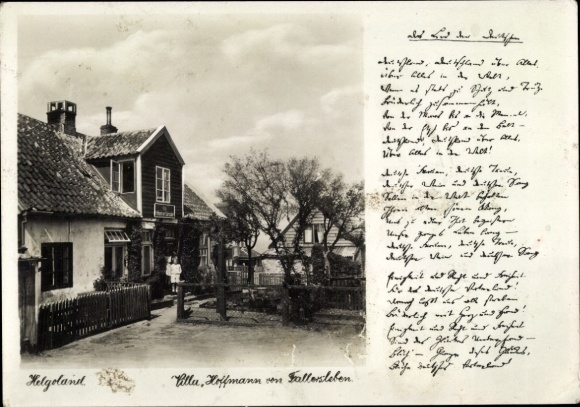 Das Lied der Deutschen
Deutschland, Deutschland über Alles,
Über Alles in der Welt,
Wenn es stets zu Schutz und Trutz
Brüderlich zusammenhält,
Von der Maas bis an die Memel,
Von der Etsch bis an den Belt –
Deutschland, Deutschland über Alles,
Über Alles in der Welt!
Deutsche Frauen, deutsche Treue,
Deutscher Wein und deutscher Sang
Sollen in der Welt behalten
Ihren alten schönen Klang,
Uns zu edler That begeistern
Unser ganzes Leben lang –
Deutsche Frauen, deutsche Treue,
Deutscher Wein und deutscher Sang
Einigkeit und Recht und Freiheit
Für das deutsche Vaterland!
Danach laßt uns alle streben
Brüderlich mit Herz und Hand!
Einigkeit und Recht und Freiheit
Sind des Glückes Unterpfand –
Blüh im Glanze dieses Glückes,
Blühe deutsches Vaterland
Helgoland
Villa „Hoffmann von Fallersleben